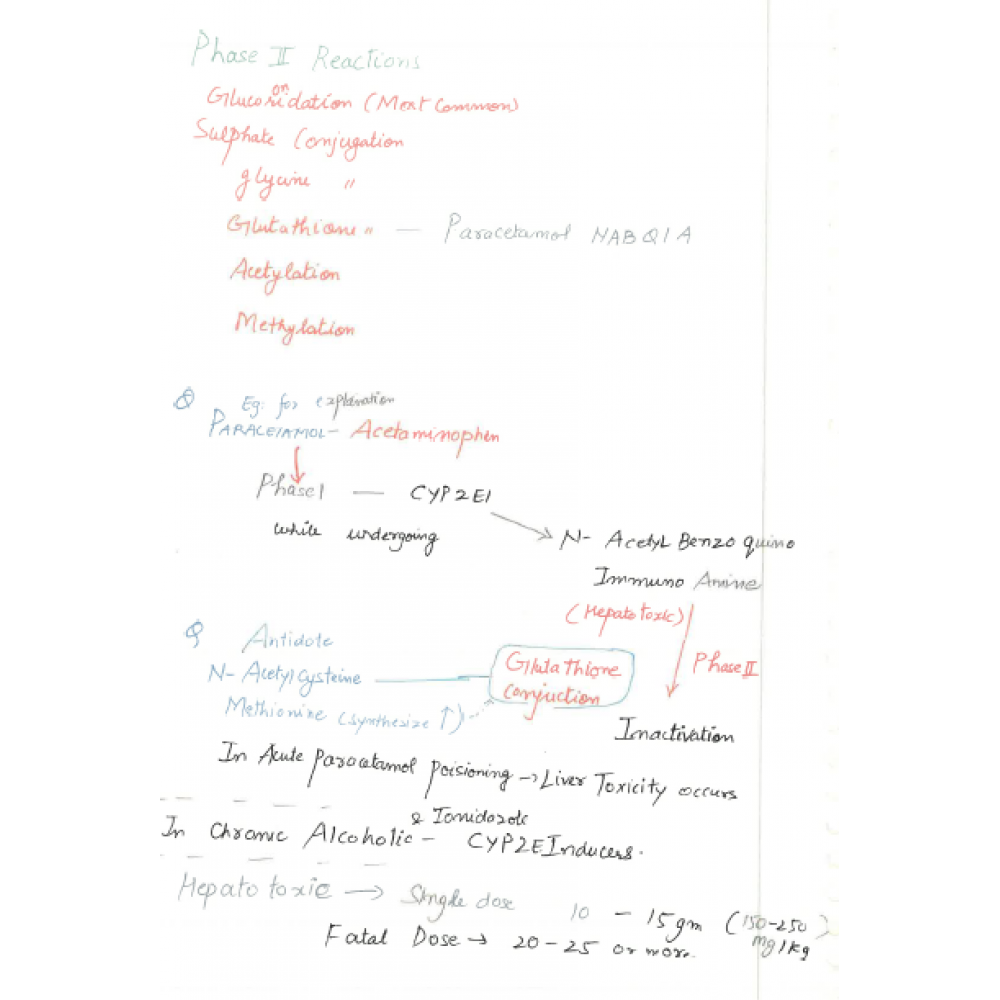 Phase II Reactions
Glucoronidation (Most Common)
Sulphate Conjugation
glycine "
Glutathione " — Paracetamol NABQIA
Acetylation
Methylation
Eg: for explanation
PARACETAMOL - Acetaminophen
Phase 1 — CYP2E1
while undergoing
N- Acetyl Benzo quino
Immuno Amine
(Hepato toxic)
Phase II
Inactivation
Q Antidote
N- Acetylcysteine
Methionine (synthesize ↑)
Glutathione
Conjuction
In Acute Paracetamol Poisioning → Liver Toxicity occurs
In Chronic Alcoholic - CYP2E Inducers.
Hepato toxic → Single dose 10 - 15gm (150-250 mg/kg)
Fatal Dose → 20-25 or more.